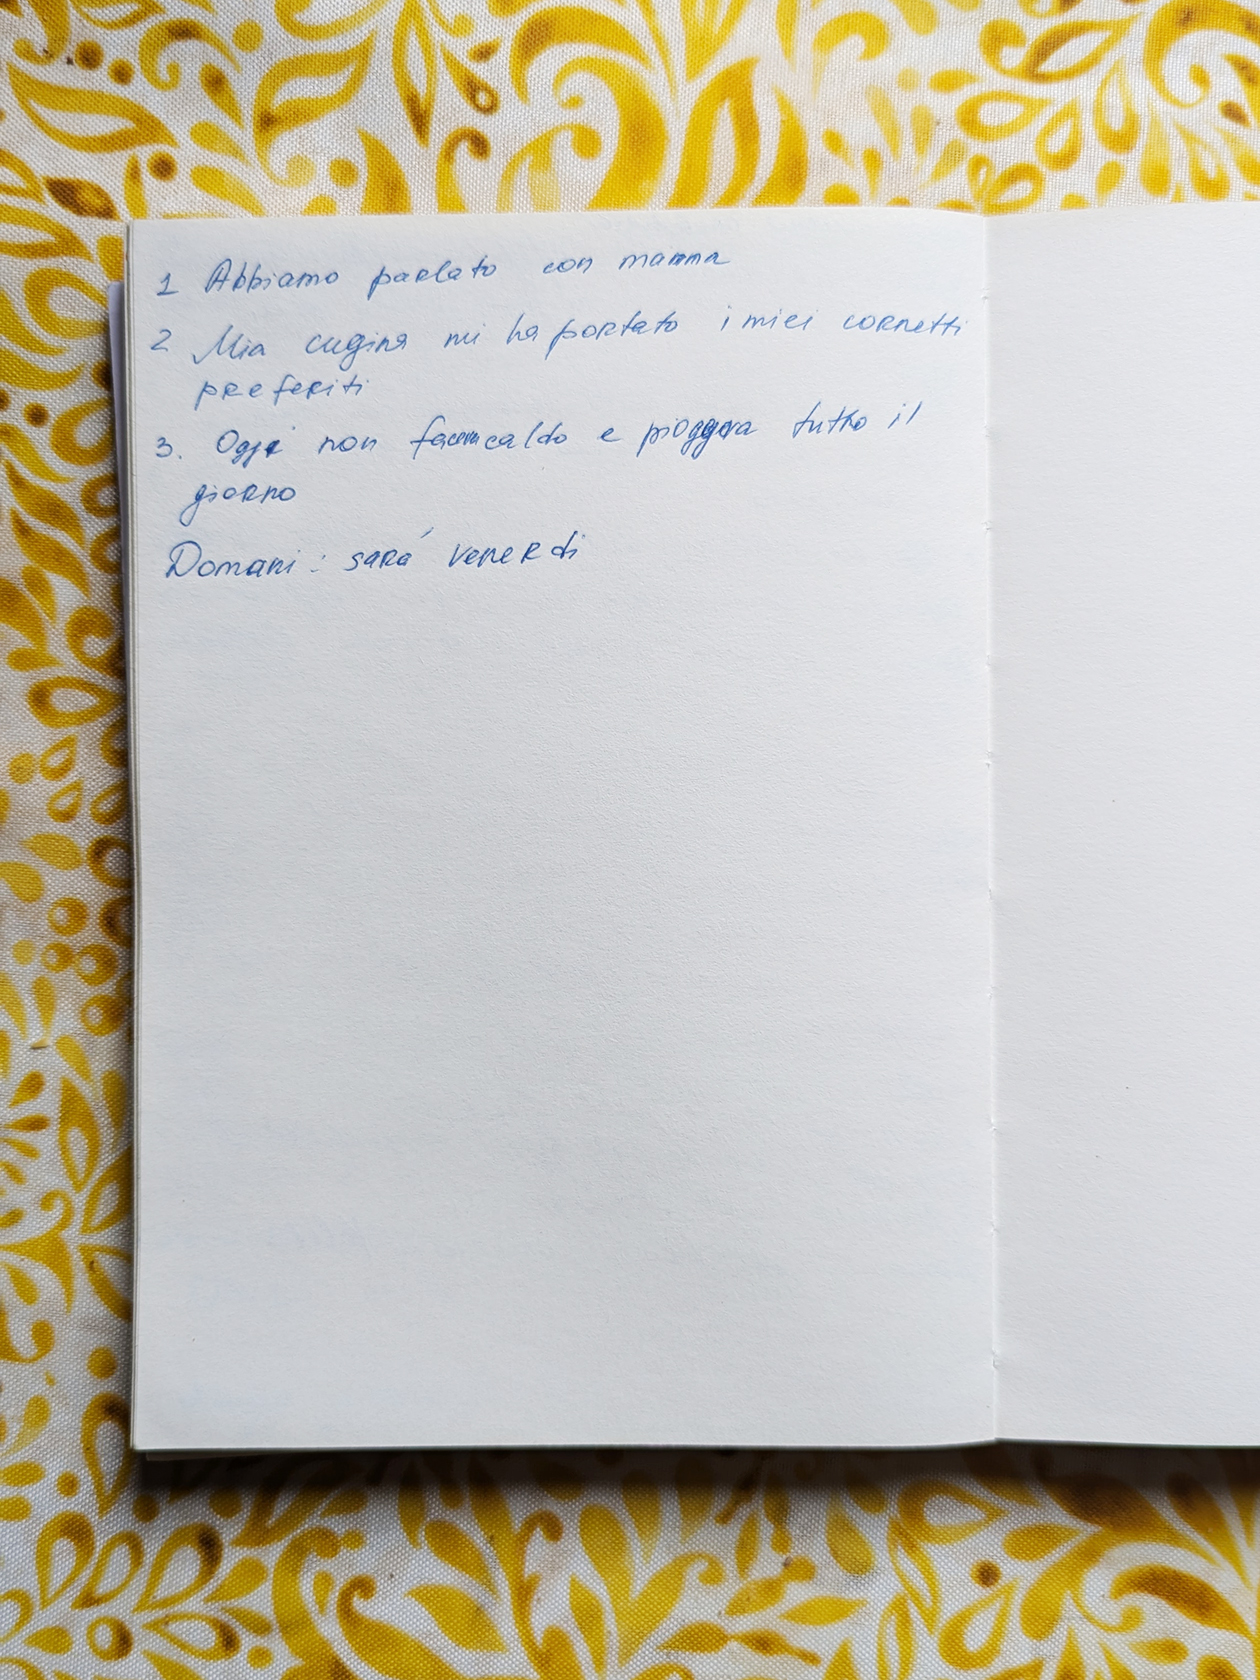 1 Abbiamo parlato con mamma
2 Mia cugina mi ha portato i miei cornetti
preferiti
3. Oggi non caldo e tutto il
giorno
Domani: sará venerdi